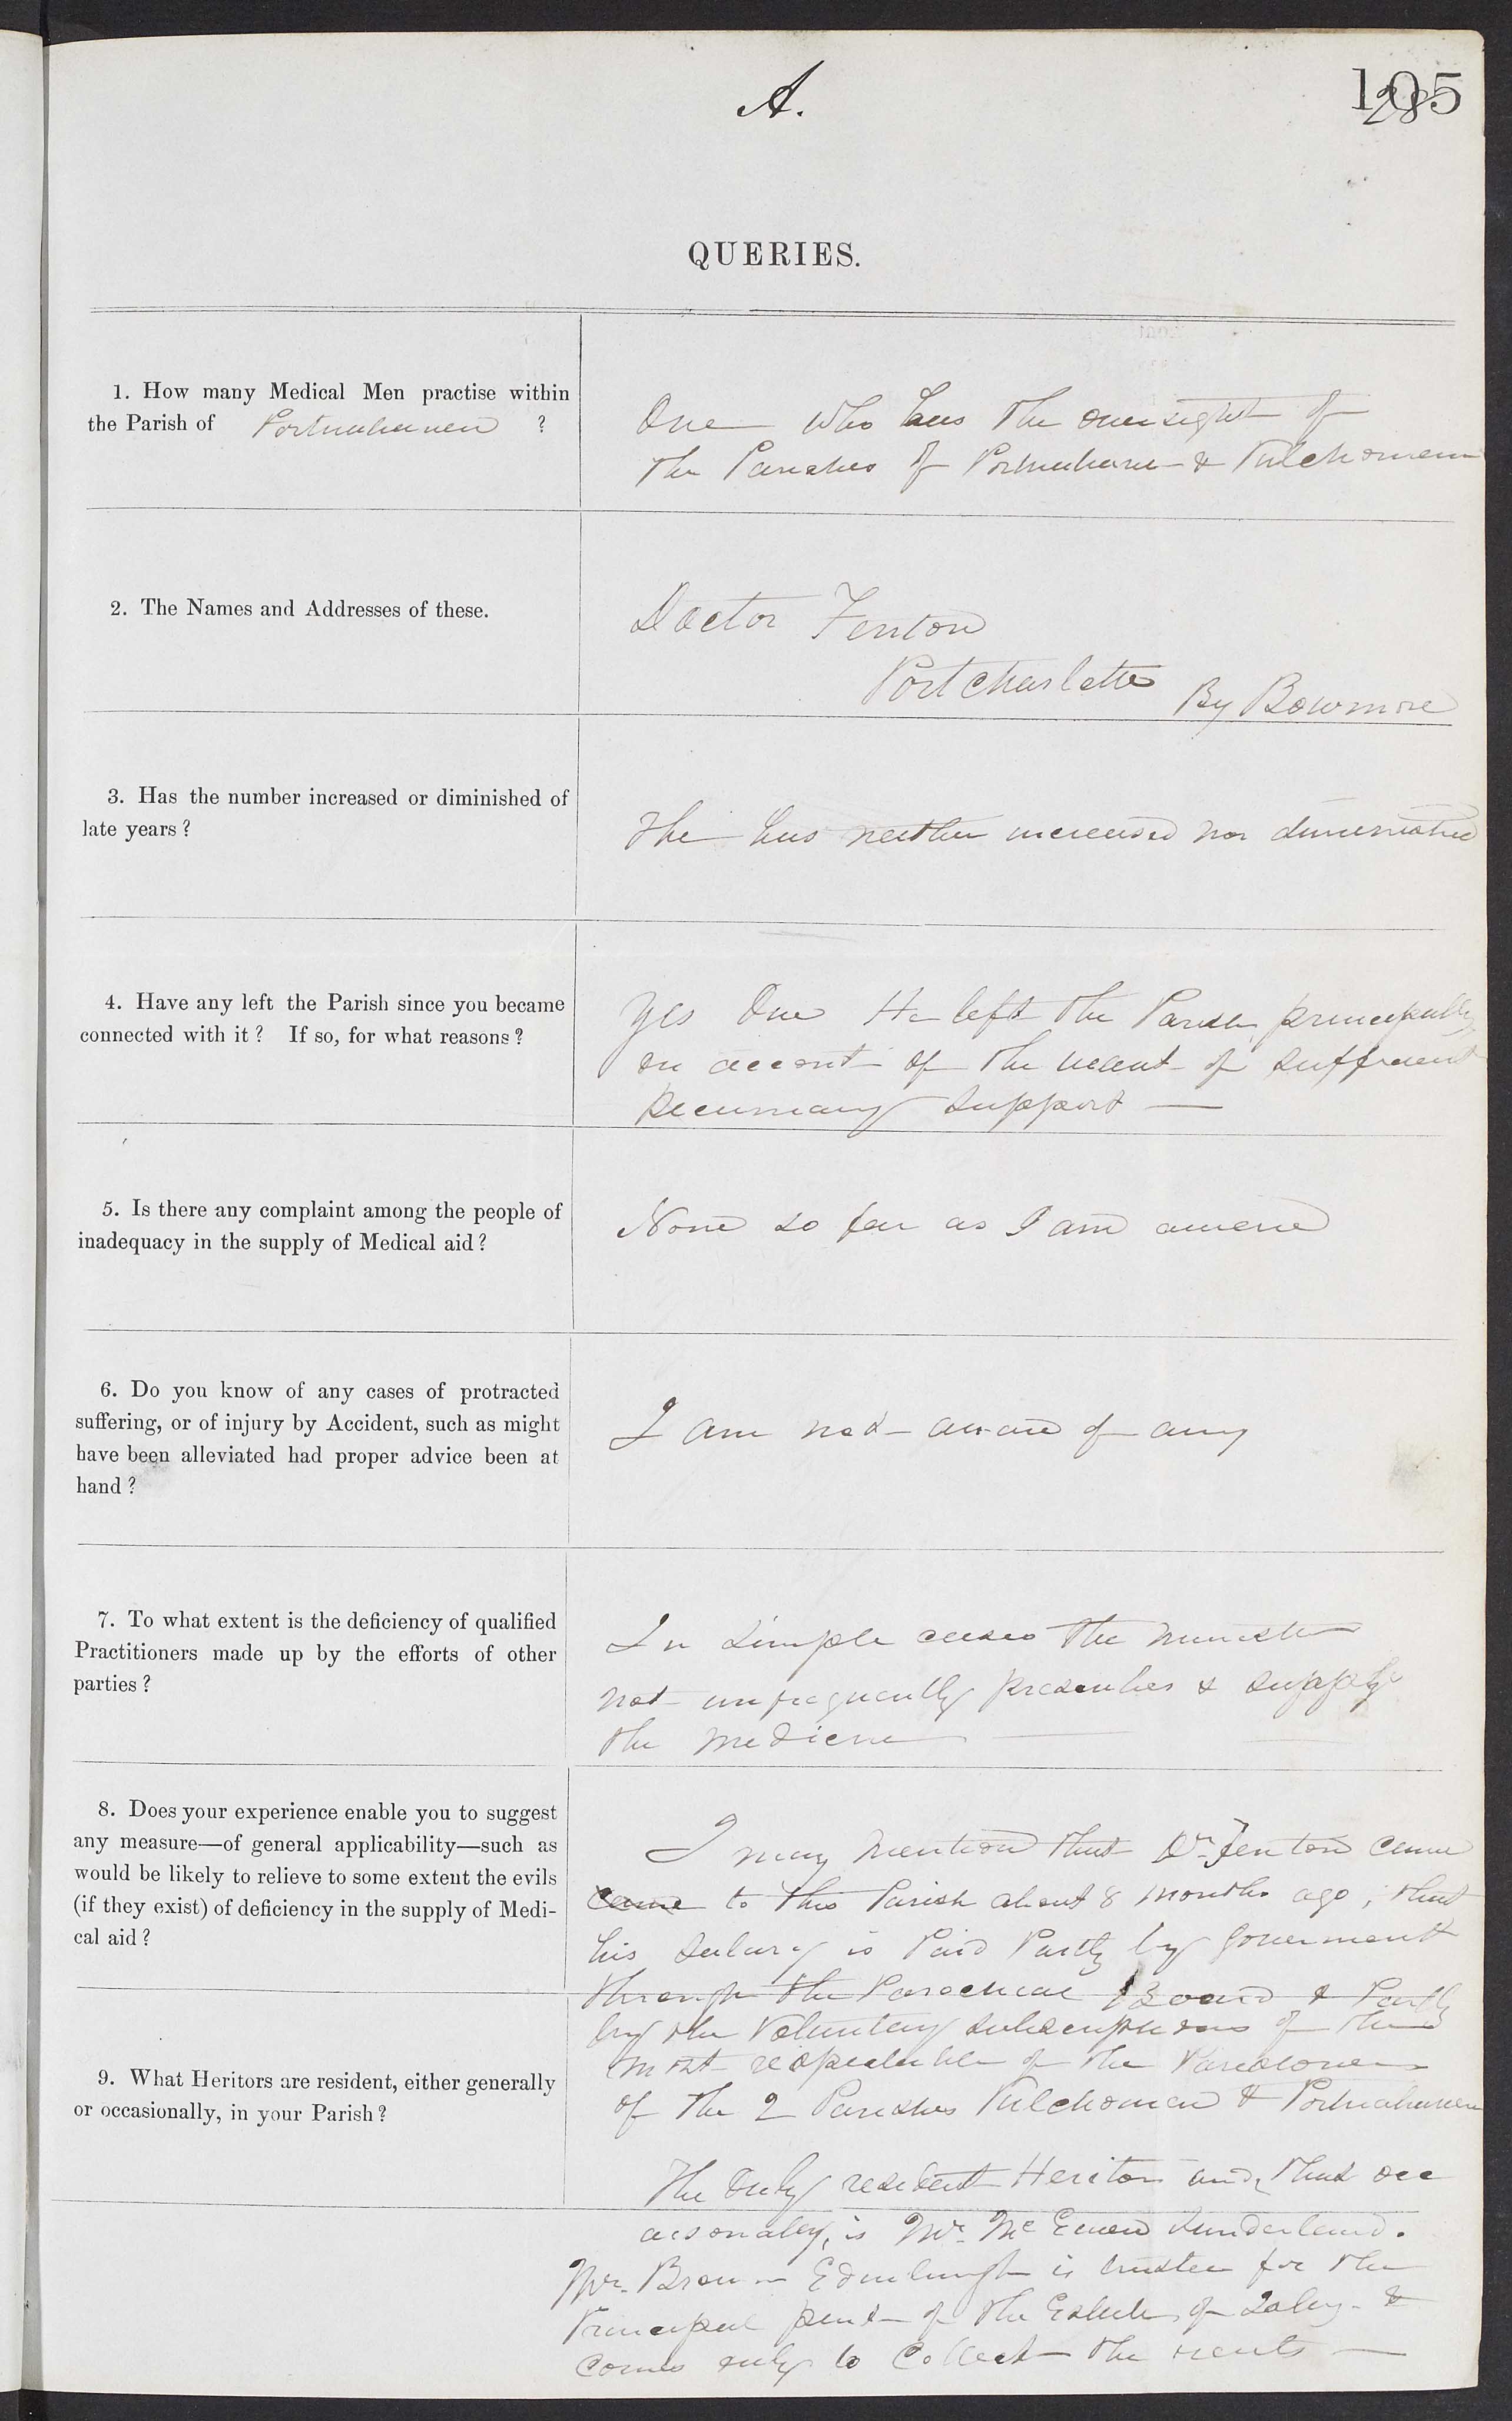 A.
105
28
QUERIES.
1. How many Medical Men practise within
the Parish of Portnahaven ?
One who has the oversight of
the Parishes of Portnahaven & Kilchoman
2. The Names and Addresses of these.
Doctor Fenton
Port Charlotte By Bowmore
3. Has the number increased or diminished of
late years ?
The has neither increased nor diminished
4. Have any left the Parish since you became
connected with it ? If so, for what reasons ?
Yes One He left the Parish principally
on account of the want of sufficient
pecuniary support —
5. Is there any complaint among the people of
inadequacy in the supply of Medical aid ?
None so far as I am aware
6. Do you know of any cases of protracted
suffering, or of injury by Accident, such as might
have been alleviated had proper advice been at
hand ?
I am not aware of any
7. To what extent is the deficiency of qualified
Practitioners made up by the efforts of other
parties ?
In simple cases the minister
not unfrequently prescribes & supply
the medicine —
8. Does your experience enable you to suggest
any measure—of general applicability—such as
would be likely to relieve to some extent the evils
(if they exist) of deficiency in the supply of Medi-
cal aid ?
I may mention that Dr. Fenton came
came to this Parish about 8 months ago ; that
his salary is Paid Partly by Government
through the Parochial Board & Partly
by the Voluntary subscriptions of the
most respectable of the Parishoners
of the 2 Parishes Kilchoman & Portnahaven
9. What Heritors are resident, either generally
or occasionally, in your Parish ?
The Only resident Heritor and, that occ
asionaly, is Mr. McEwen Sunderland.
Mr. Brown Edinburgh is trustee for the
Principal part of the Estate of Islay &
comes only to Collect the rents —